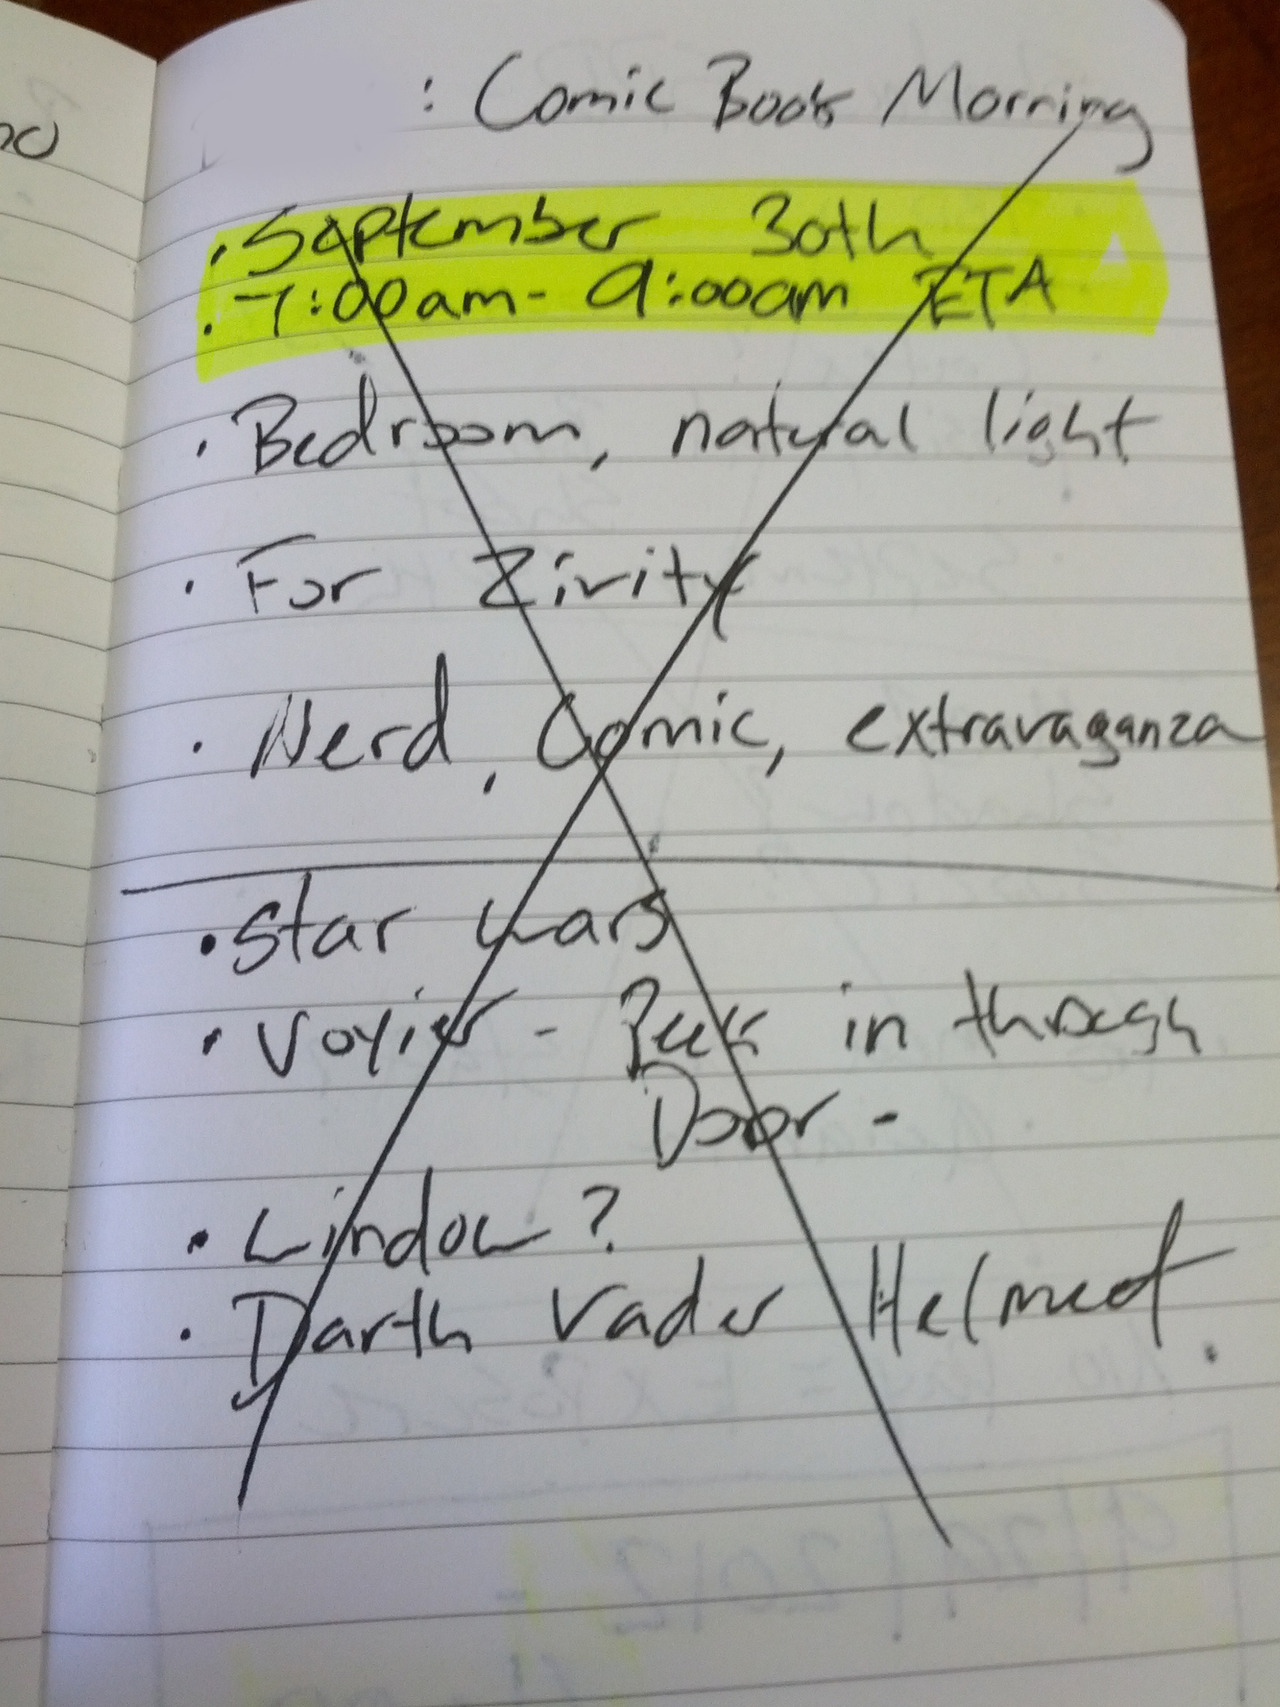 : Comic Book Morning
• September 30th
• 7:00am - 9:00am ETA
• Bedroom, natural light
• For Zivity
• Nerd, Comic, extravaganza
• Star Wars
• Voyier - Peek in through
Door -
• Window?
• Darth Vader Helmet.